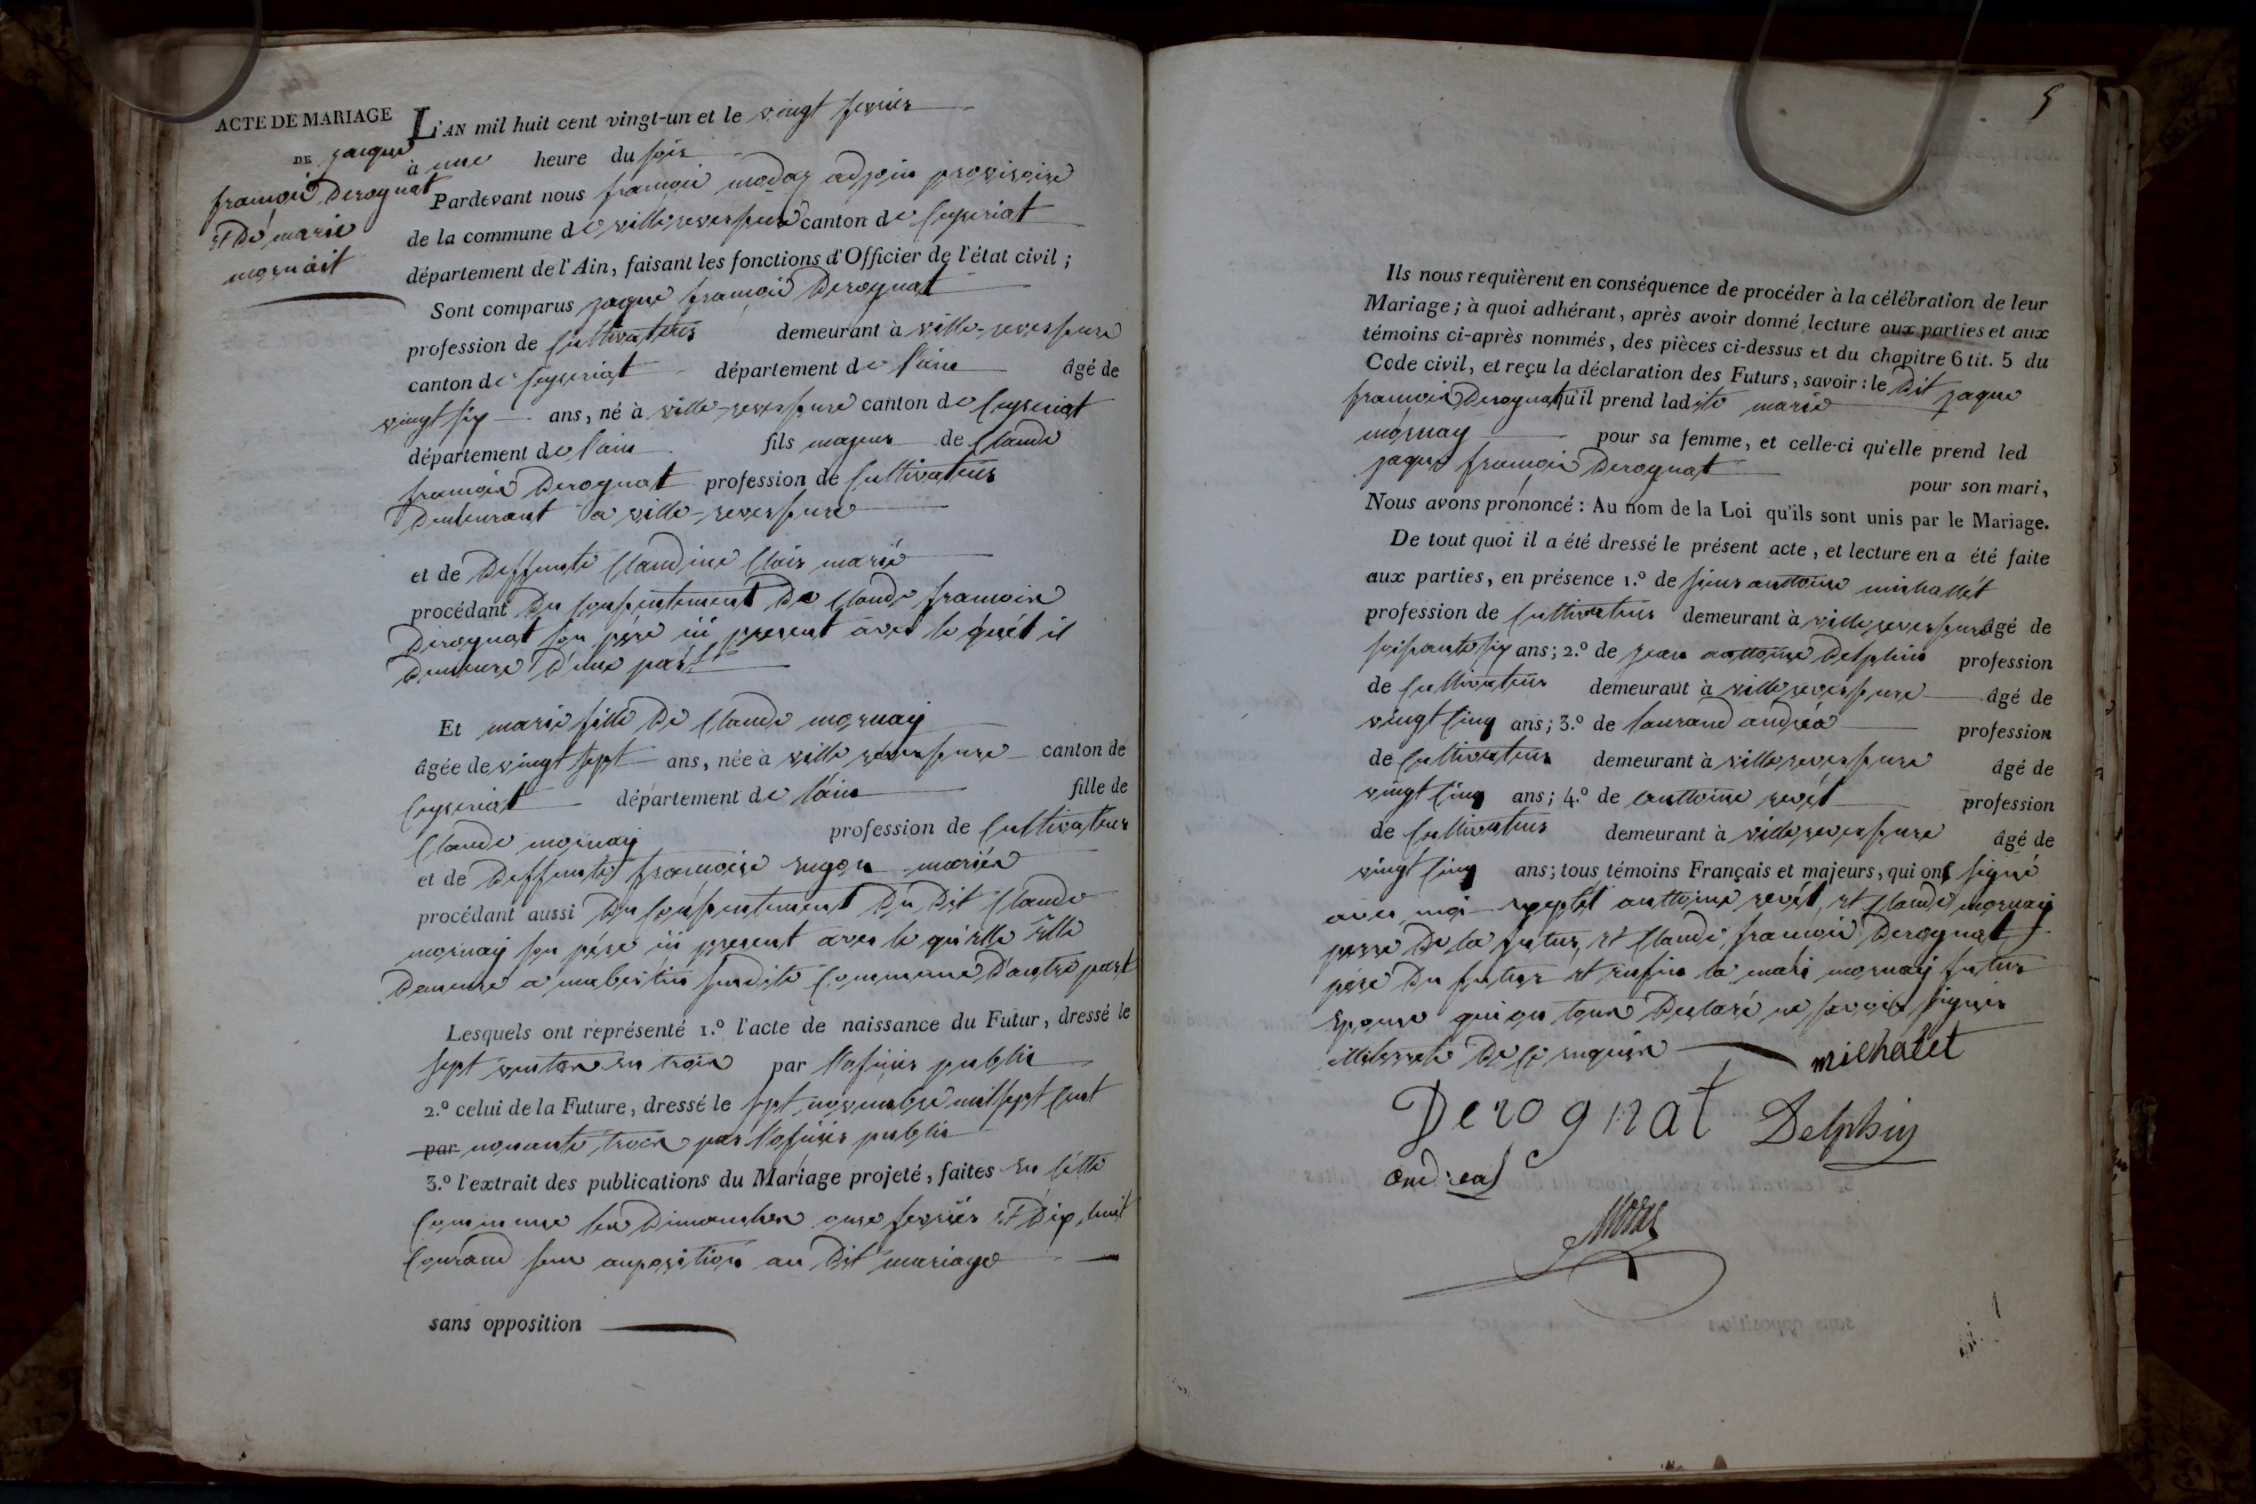 ACTE DE MARIAGE
DE jaque
françois Derognat
et De marie
mornait
L'AN mil huit cent vingt-un et le vingt fevrier
à une heure du soir
Pardevant nous françois moday adjoin provisoire
de la commune de villereversure canton de Ceyseriat
département de l'Ain, faisant les fonctions d'Officier de l'état civil ;
Sont comparus jaque françois Derognat
profession de Cultivateur demeurant à ville-reversure
canton de Ceyseriat département de l'ain âgé de
vingt six ans, né à ville-reversure canton de Ceyseriat
département de l'ain fils majeur de Claude
françois Derognat profession de Cultivateur
Demeurant a ville-reversure
et de Deffunte Claudine Clair marié
procédant Du Consentement De Claude francois
Derognat son père ici present avec le quél il
Demeure D'une part
Et marie fille De Claude mornay
âgée de vingt sept ans, née à ville reversure canton de
Ceyseriat département de l'ain fille de
Claude mornay profession de Cultivateur
et de Deffunte françoise rugon mariés
procédant aussi Du Consentement Du Dit Claude
mornay son père ici present avec le qu'elle Elle
Demeure a susdite Commune D'autre part
Lesquels ont représenté 1.º l'acte de naissance du Futur, dressé le
sept ventose en trois par l'oficier public
2.º celui de la Future, dressé le sept novembre mil sept Cent
par nonante trois par l'oficier public
3.º l'extrait des publications du Mariage projeté, faites en Cette
Commune les Dimanches onze fevrier et Dix huit
Courand sans auposition au Dit mariage
sans opposition
5
Ils nous requièrent en conséquence de procéder à la célébration de leur
Mariage ; à quoi adhérant, après avoir donné lecture aux parties et aux
témoins ci-après nommés, des pièces ci-dessus et du chapitre 6 tit. 5 du
Code civil, et reçu la déclaration des Futurs, savoir : le Dit jaque
francois Derognat qu'il prend ladite marie
mornay pour sa femme, et celle-ci qu'elle prend led
jaque françois Derognat pour son mari,
Nous avons prononcé : Au nom de la Loi qu'ils sont unis par le Mariage.
De tout quoi il a été dressé le présent acte, et lecture en a été faite
aux parties, en présence 1.º de sieur anttoine michallét
profession de Cultivateur demeurant à villereversure âgé de
soisante six ans ; 2.º de jean anttoine Delphin profession
de Cultivateur demeurant à villereversure âgé de
vingt Cinq ans ; 3.º de laurand andréa profession
de Cultivateur demeurant à villereversure âgé de
vingt Cinq ans ; 4.º de anttoine revét profession
de Cultivateur demeurant à villereversure âgé de
vingt Cinq ans ; tous témoins Français et majeurs, qui ont signé
avec moi exeptét anttoine revét et Claude mornay
perre De la future et Claude francois Derognat
père Du futur et enfin la mornay futur
Epouse qui on tous Declaré ne savoir signer
De Ce enquis
michalet
Derognat Delphin
andreas
Moday